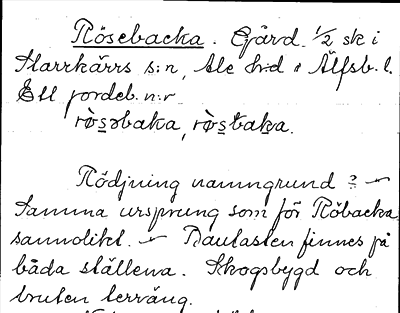 Rösebacka. Gård. 1/2 sk i
Starrkärrs s:n, Ale h:d i Älfsb. l.
Ett jordeb. n:r
rò̤sǝbaka, rò̤sbaka.
Rödjning namngrund ? —
Samma ursprung som för Röbacka
sannolikt. — Bautasten finnes på
båda ställena. Skogsbygd och
bruten terräng.